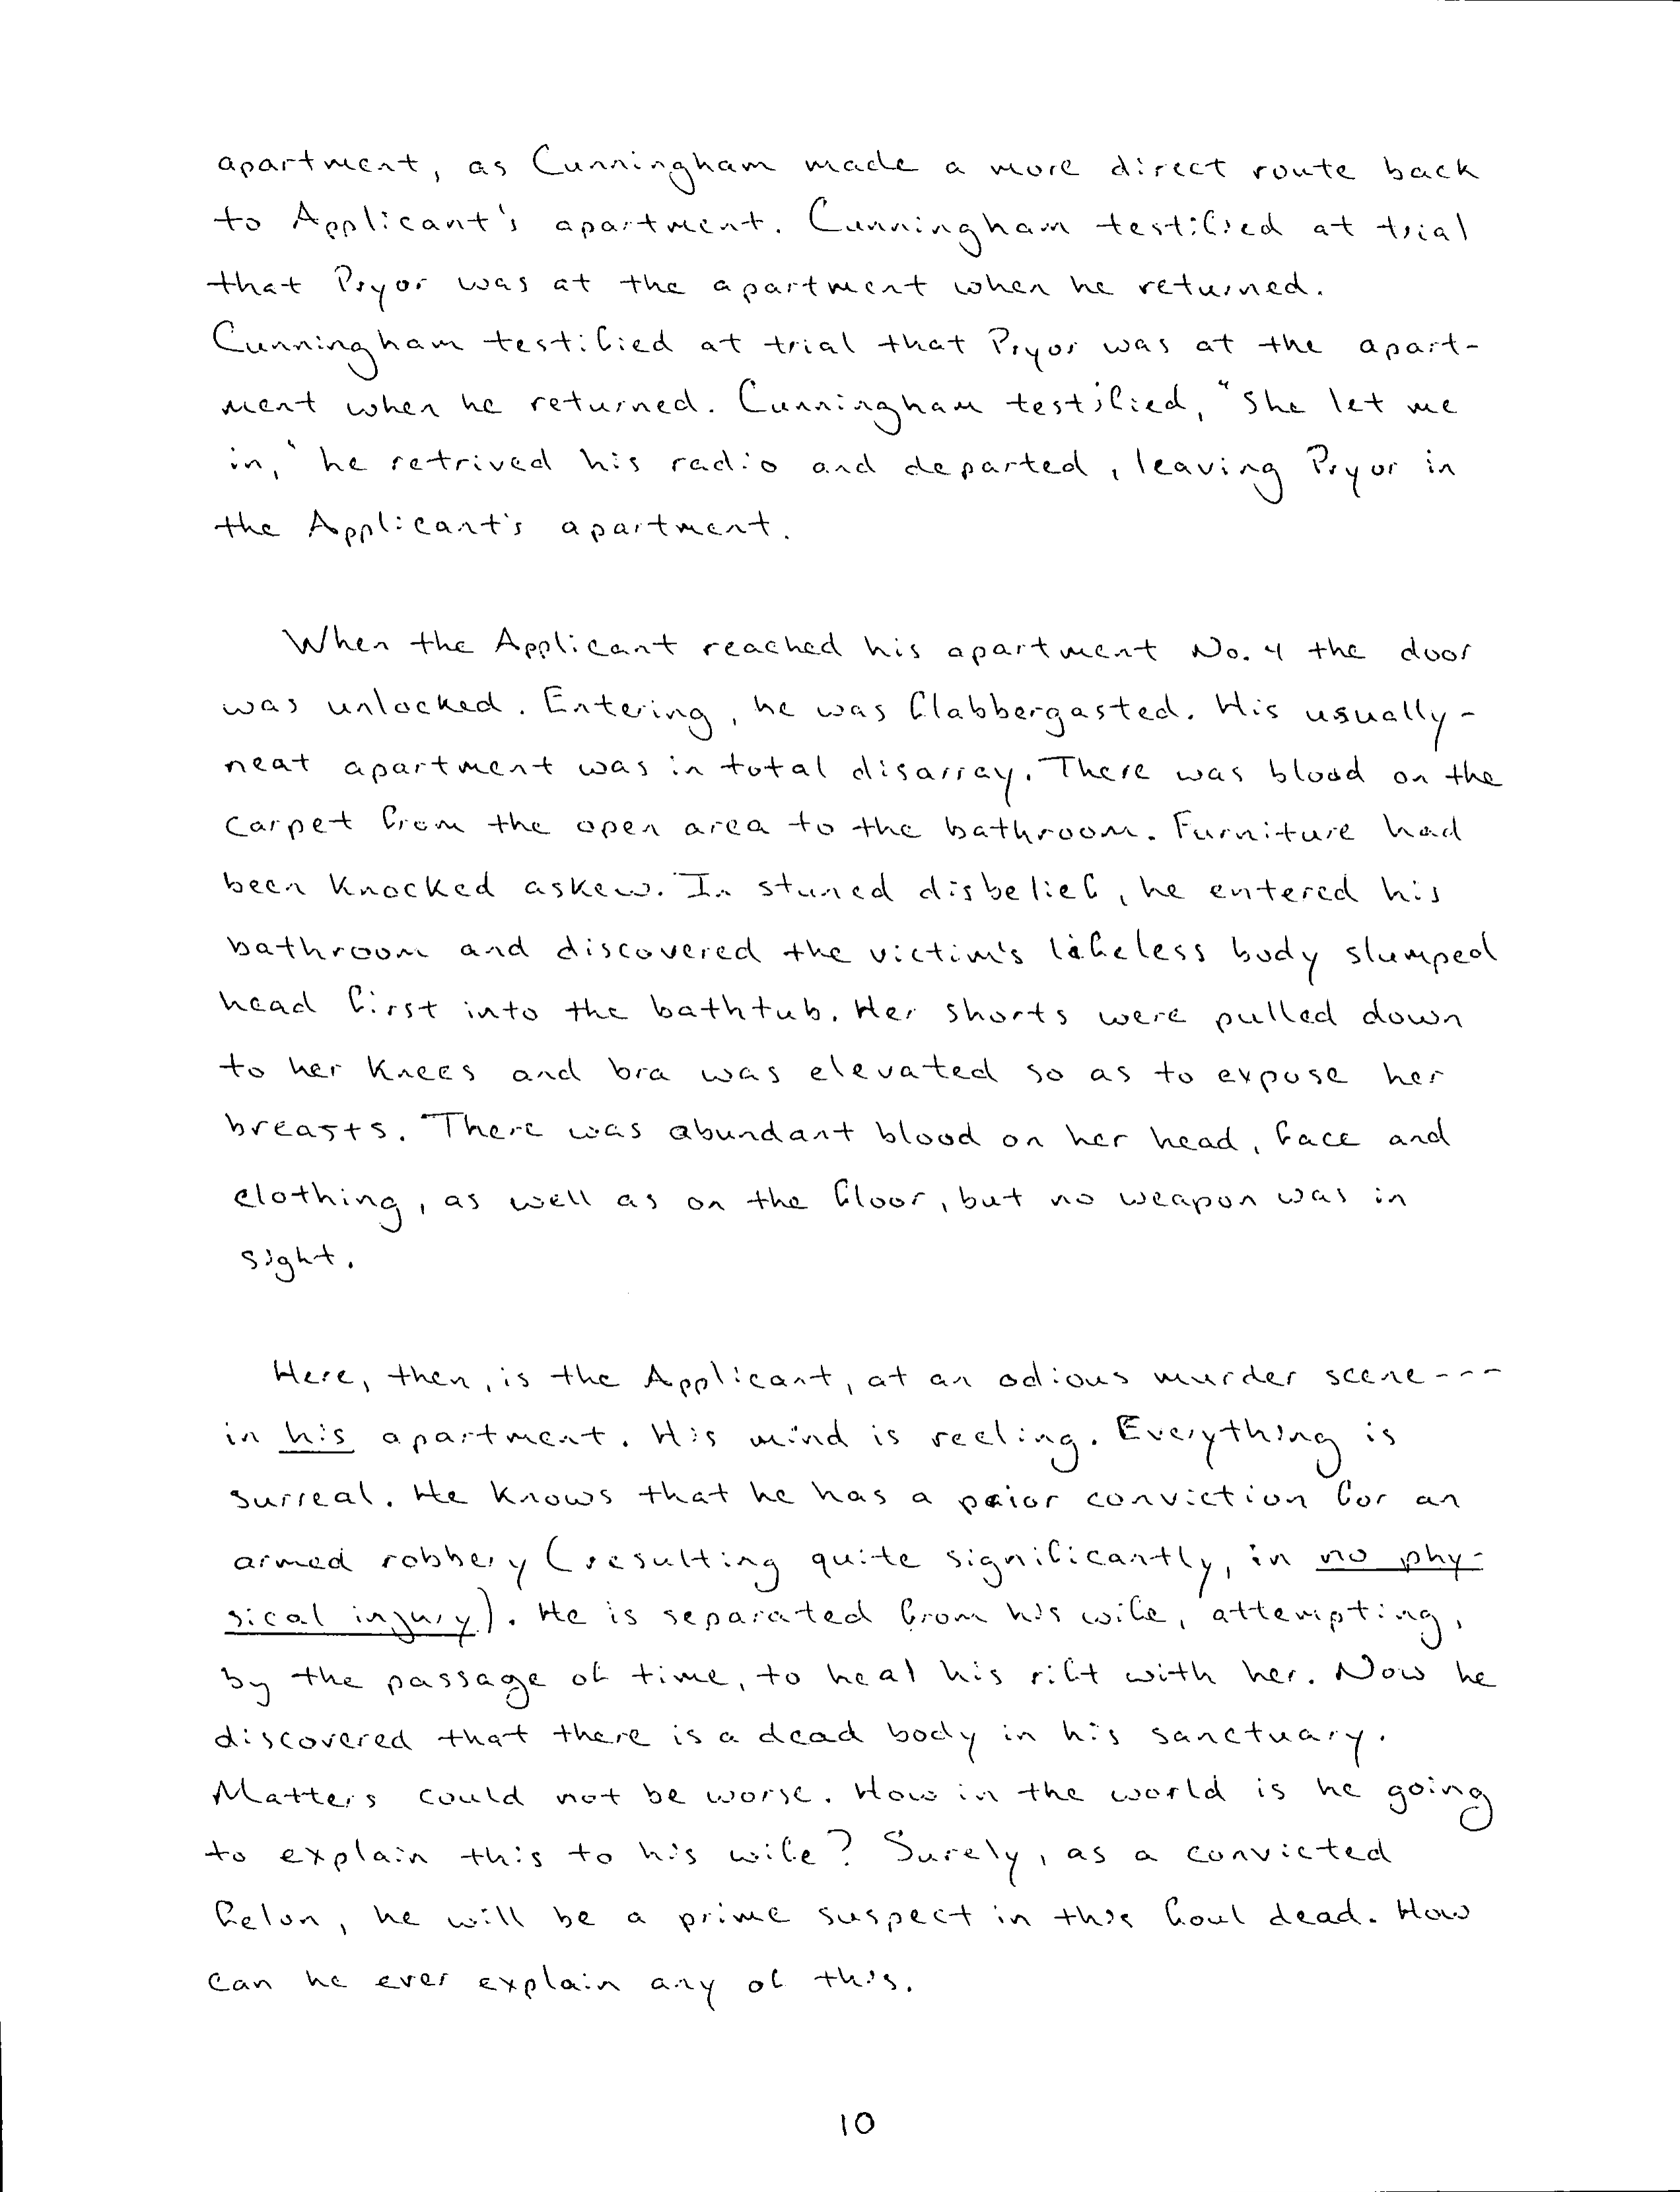 apartment, as Cunningham made a more direct route back
to Applicant's apartment. Cunningham testified at trial
that Pryor was at the apartment when he returned.
Cunningham testified at trial that Pryor was at the apart-
ment when he returned. Cunningham testified, "She let me
in," he retrived his radio and departed, leaving Pryor in
the Applicant's apartment.
When the Applicant reached his apartment No. 4 the door
was unlocked. Entering, he was flabbergasted. His usually-
neat apartment was in total disarray. There was blood on the
carpet from the open area to the bathroom. Furniture had
been knocked askew. In stuned disbelief, he entered his
bathroom and discovered the victim's lifeless body slumped
head first into the bathtub. Her shorts were pulled down
to her knees and bra was elevated so as to expose her
breasts. There was abundant blood on her head, face and
clothing, as well as on the floor, but no weapon was in
sight.
Here, then, is the Applicant, at an odious murder scene---
in his apartment. His mind is reeling. Everything is
surreal. He knows that he has a prior conviction for an
armed robbery (resulting quite significantly, in no phy-
sical injury). He is separated from his wife, attempting,
by the passage of time, to heal his rift with her. Now he
discovered that there is a dead body in his sanctuary.
Matters could not be worse. How in the world is he going
to explain this to his wife? Surely, as a convicted
felon, he will be a prime suspect in this foul dead. How
can he ever explain any of this.
10